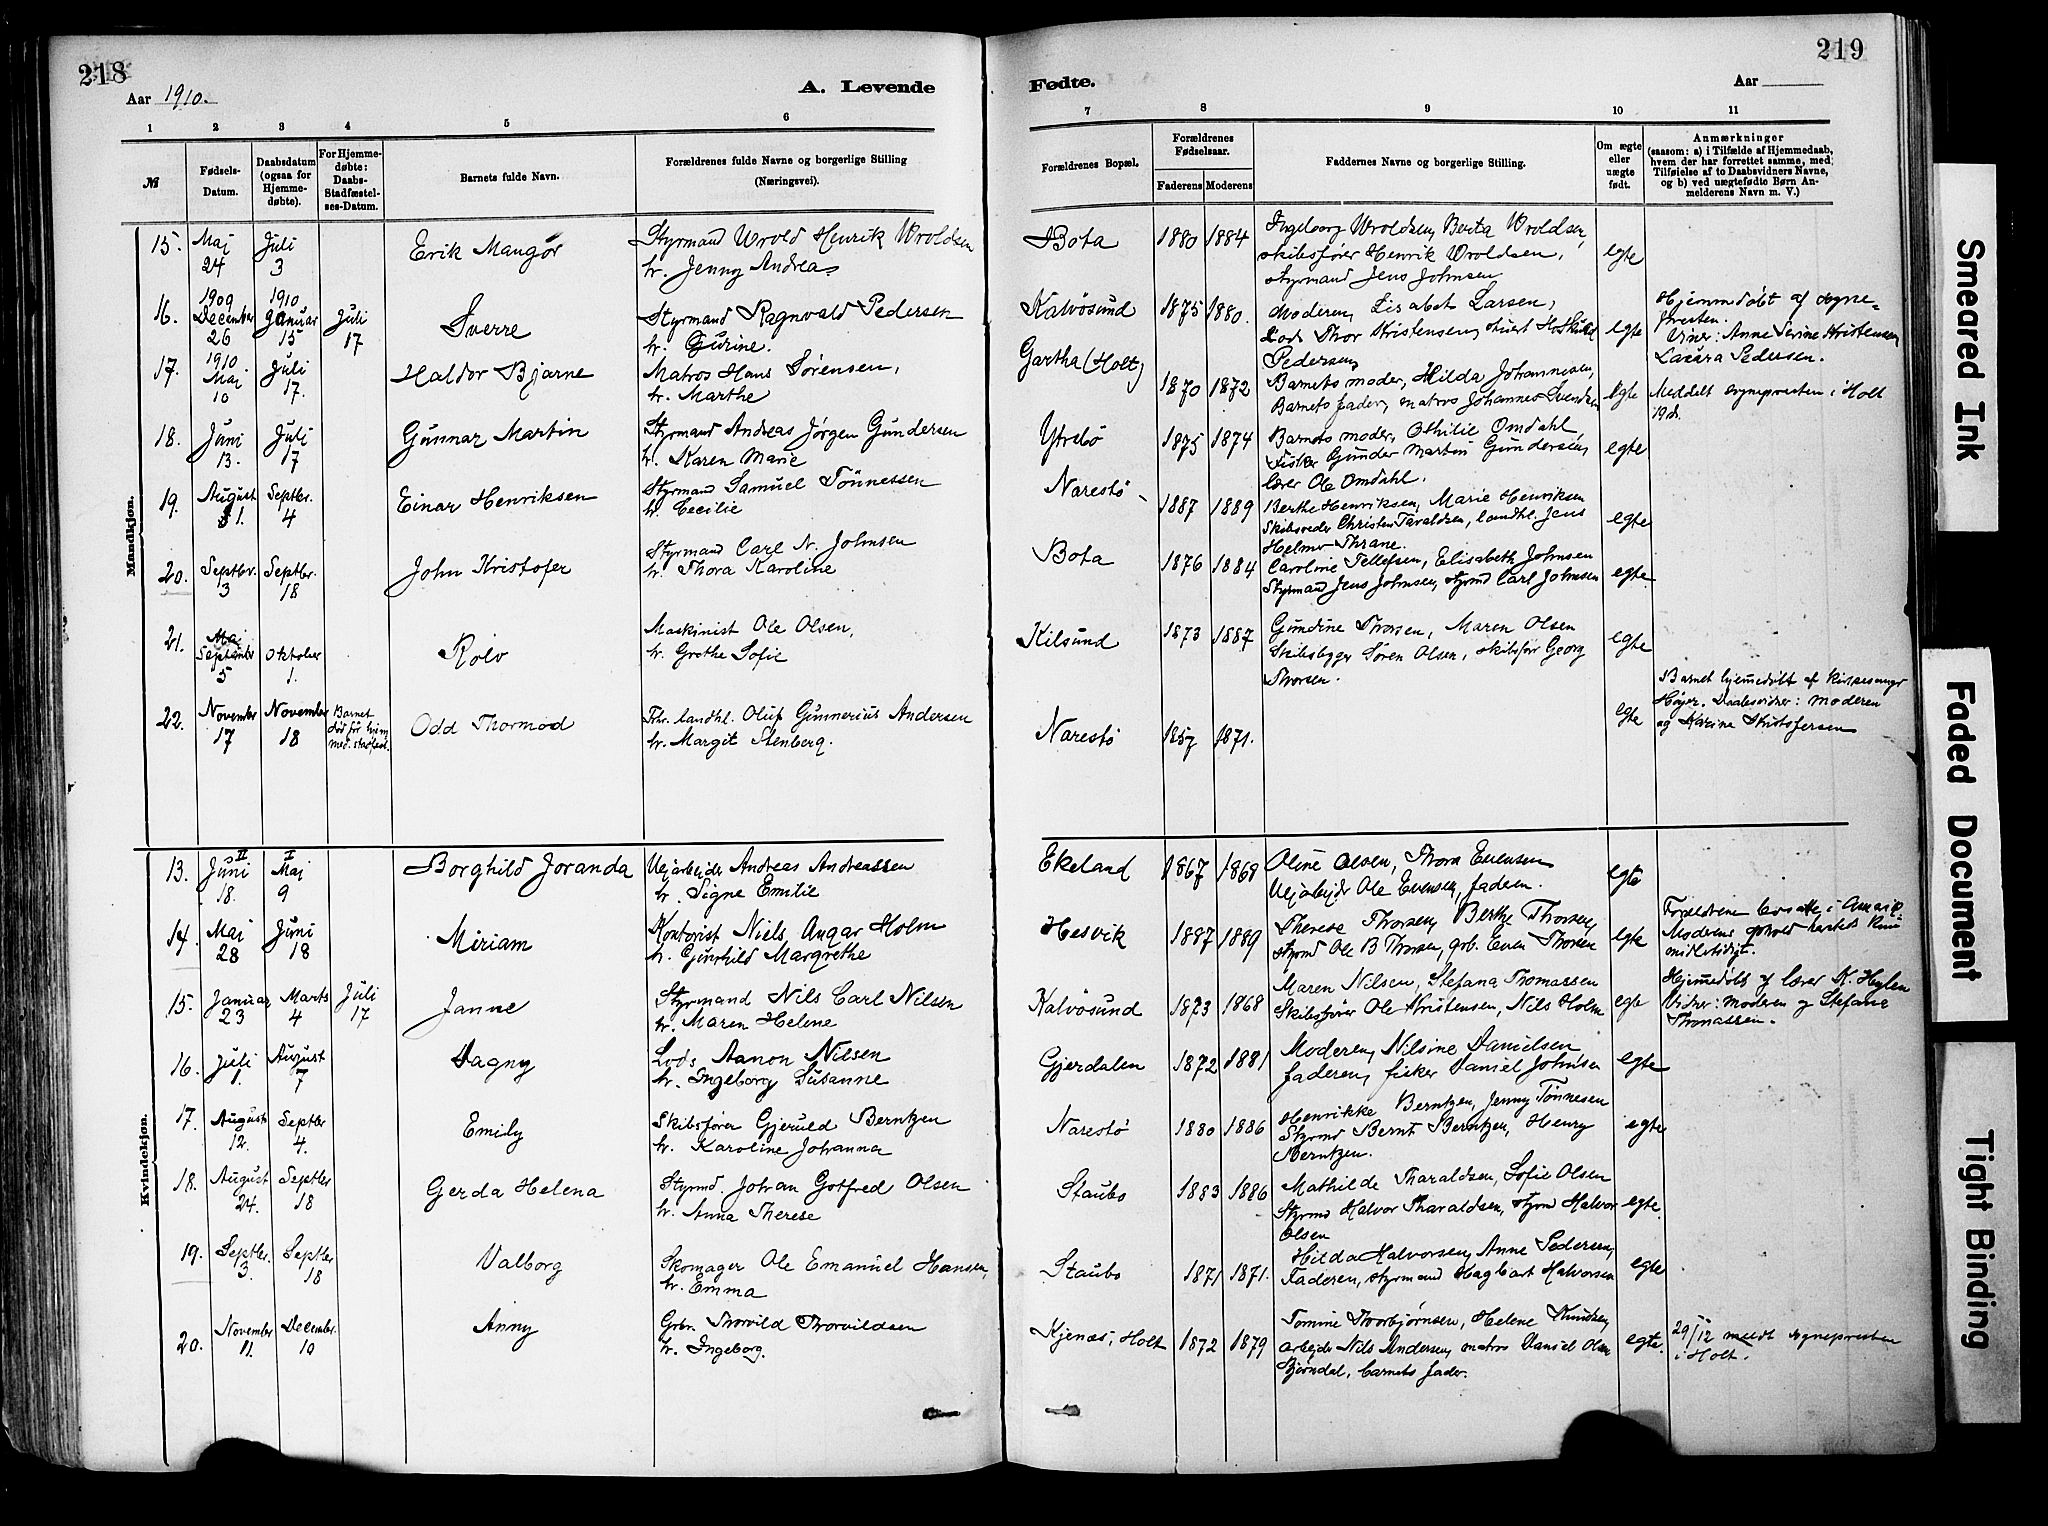 218
Aar 1910.
A. Levende
1 2 3 4 5 6
№
Fødsels-
Datum.
Daabsdatum
(ogsaa for
Hjemme-
døbte).
For Hjemme-
døbte:
Daabs-
Stadfæstel-
ses-Datum.
Barnets fulde Navn.
Forældrenes fulde Navne og borgerlige Stilling
(Næringsvei).
Mandkjøn.
15. Maj 24 Juli 3 Erik Mangor Styrmand Wrold Henrik Wroldsen
h. Jenny Andrea
16. 1909 December 26 1910 Januar 15 Juli 17 Sverre Styrmand Ragnvald Pedersen
h. Gurine.
17. 1910. Maj 10 Juli 17. Haldor Bjarne Matros Hans Sørensen,
h. Marthe
18. Juni 13. Juli 17 Gunnar Martin Styrmand Andreas Jørgen Gundersen
h. Karen Marie
19. August 1. Septbr. 4 Einar Henriksen Styrmand Samuel Tönnessen
h. Cecilie
20. Septbr. 3 Septbr. 18 John Kristofer Styrmand Carl N. Johnsen
h. Thora Karoline
21. Maj September 5 Oktober 1. Rolv Maskinist Ole Olsen,
h. Grethe Sofie
22. November 17 November 18 Barnet död för hjem med. stadfæst. Odd Thormod Fhv. landhl. Oluf Gunnerius Andersen
h. Margit Stenberg.
Kvindekjøn.
13. II Juni 18. I Maj 9 Borghild Joranda Vejarbejder Andreas Andreassen
h. Signe Emilie
14. Maj 28 Juni 18 Miriam Kontorist Niels Ansgar Holm
h. Gunhild Margrethe
15. Januar 23 Marts 4 Juli 17 Janne Styrmand Nils Carl Nilsen
h. Maren Helene
16. Juli 1. August 7 Dagny Lods Aanon Nilsen
h. Ingeborg Susanne
17. August 12. Septbr 4. Emily Skibsfører Gjeruld Berntzen
h. Karoline Johanna
18. August 24. Septbr 18 Gerda Helena Styrmd. Johan Gotfred Olsen
h. Anna Therese
19. Septbr. 3. Septbr 18 Valborg Skomager Ole Emanuel Hansen,
h. Emma
20. November 11. December 10 Anny Grbr. Thorvild Thorvildsen
h. Ingeborg.
219
Fødte.
Aar
7 8 9 10 11
Forældrenes Bopæl.
Forældrenes
Fødselsaar.
Faderens Moderens
Faddernes Navne og borgerlige Stilling.
Om ægte
eller
uægte
født.
Anmærkninger
(saasom: a) i Tilfælde af Hjemmedaab,
hvem der har forrettet samme, med
Tilføielse af to Daabsvidners Navne,
og b) ved uægtefødte Børn An-
melderens Navn m. V.)
Bota 1880 1884 Ingeborg Wroldsen, Berta Wroldsen,
skibsfører Henrik Wroldsen,
styrmand Jens Johnsen
egte
Kalvösund 1875 1880. Moderen, Lisabet Larsen,
Lods Thor Kristensen,
Pedersen
egte
Hjemmedöbt af sogne-
presten.
Vidner: Anne Serine Kristensen,
Laura Pedersen.
Gartha (Holt) 1870 1872 Barnets moder, Hilda Johannesen,
Barnets fader, matros Johannes Svendsen
egte
Meddelt sognepresten i Holt
Ytrebö 1875 1874 Barnets moder, Othilie Omdahl,
Fisker Gunder Martin Gundersen,
lærer Ole Omdahl.
egte
Narestö 1887 1889 Berthe Henriksen, Marie Henriksen
Skibsreder Christen Taraldsen, landhl. Jens
Helmer Thrane.
egte
Bota 1876 1884 Caroline Tellefsen, Elisabeth Johnsen
Styrmand Jens Johnsen, styrmd Carl Johnsen
egte
Kilsund 1873 1887 Gundine Thorsen, Maren Olsen
Skibsbygger Sören Olsen, skibsför Georg
Thorsen.
egte
Narestö 1857 1871.
egte
Barnet hjemmedöbt af kirkesanger
Høyer. Daabsvidner: moderen
og Karine Kristofersen
Ekeland 1867 1868 Oline Olsen, Thora Evensen
Vejarbejder Ole Evensen, faderen.
egte
Hesvik 1887 1889 Therese Thorsen, Berthe Thorsen,
styrmd Ole B Thorsen, grb. Even Thorsen
egte
Forældrene bosatte i Amerik.
Moderens ophold herstets kun
midlertidigt.
Kalvösund 1873 1868 Maren Nilsen, Stefana Thomassen
Skibsfører Ole Kristensen, Nils Holm
egte
Hjemmedöbt af lærer K. Heglen
Vidner: moderen og Stefanie
Thomassen.
Gjerdalen 1872 1881 Moderen, Nilsine Danielsen
faderen, fisker Daniel Johnsen
egte
Narestö 1880 1886 Henrikke Berntzen, Jenny Tönnesen
Styrmd Bernt Berntzen, Henry
Berntzen.
egte
Staubö 1883 1886 Mathilde Tharaldsen, Sofie Olsen
Styrmd Halvor Tharaldsen, styrmd Halvor
Olsen
egte.
Staubö 1871 1871. Hilda Halvorsen, Anne Pedersen,
Faderen, styrmand Hagbart Halvorsen
egte
Kjenæs, Holt 1872 1879 Tomine Thorbjørnsen, Helene Knudsen,
arbejder Nils Andersen, matros Daniel Olsen
Bjørndal, barnets fader.
egte.
29/12 meddt sognepresten
i Holt.
Smeared Ink
Faded Document
Tight Binding